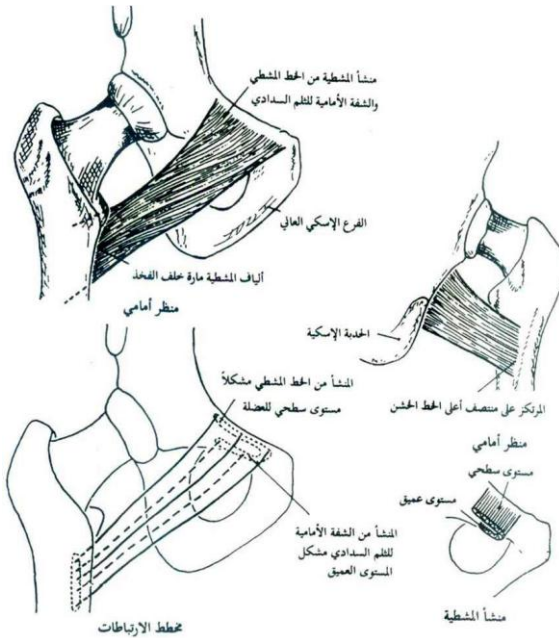 منشأ المشطية من الخط المشطي
والشفة الأمامية للثلم السدادي
الفرع الإسكي العاني
ألياف المشطية مارة خلف الفخذ
منظر أمامي
الحدبة الإسكية
المرتكز على منتصف أعلى الخط الخشن
منظر أمامي
المنشأ من الخط المشطي مشكلاً
مستوى سطحي للعضلة
المنشأ من الشفة الأمامية
للثلم السدادي مشكل
المستوى العميق
مخطط الارتباطات
مستوى سطحي
مستوى عميق
منشأ المشطية